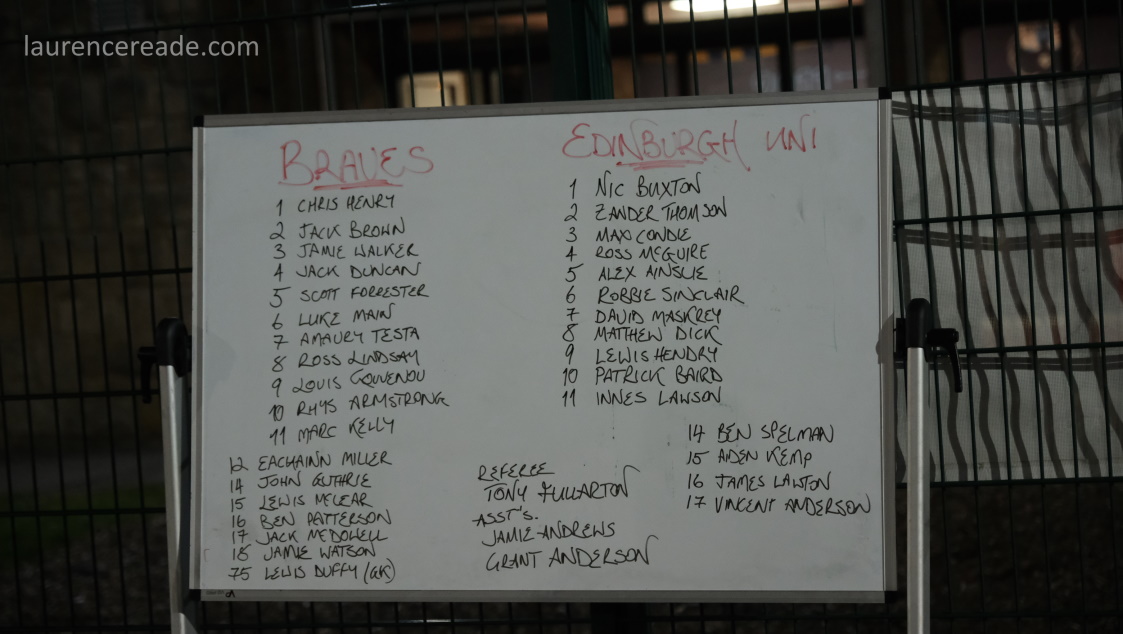 laurencereade.com
BRAVES
1 CHRIS HENRY
2 JACK BROWN
3 JAMIE WALKER
4 JACK DUNCAN
5 SCOTT FORRESTER
6 LUKE MAIN
7 AMAURY TESTA
8 ROSS LINDSAY
9 LOUIS GOUVENOU
10 RHYS ARMSTRONG
11 MARC KELLY
12 EACHAINN MILLER
14 JOHN GUTHRIE
15 LEWIS MCLEAR
16 BEN PATTERSON
17 JACK MCDOWELL
18 JAMIE WATSON
75 LEWIS DUFFY (GK)
REFEREE
TONY FULLARTON
ASST'S.
JAMIE ANDREWS
GRANT ANDERSON
EDINBURGH UNI
1 NIC BUXTON
2 ZANDER THOMSON
3 MAX CONDIE
4 ROSS MCGUIRE
5 ALEX AINSLIE
6 ROBBIE SINCLAIR
7 DAVID MASKREY
8 MATTHEW DICK
9 LEWIS HENDRY
10 PATRICK BAIRD
11 INNES LAWSON
14 BEN SPELMAN
15 AIDEN KEMP
16 JAMES LAWTON
17 VINCENT ANDERSON